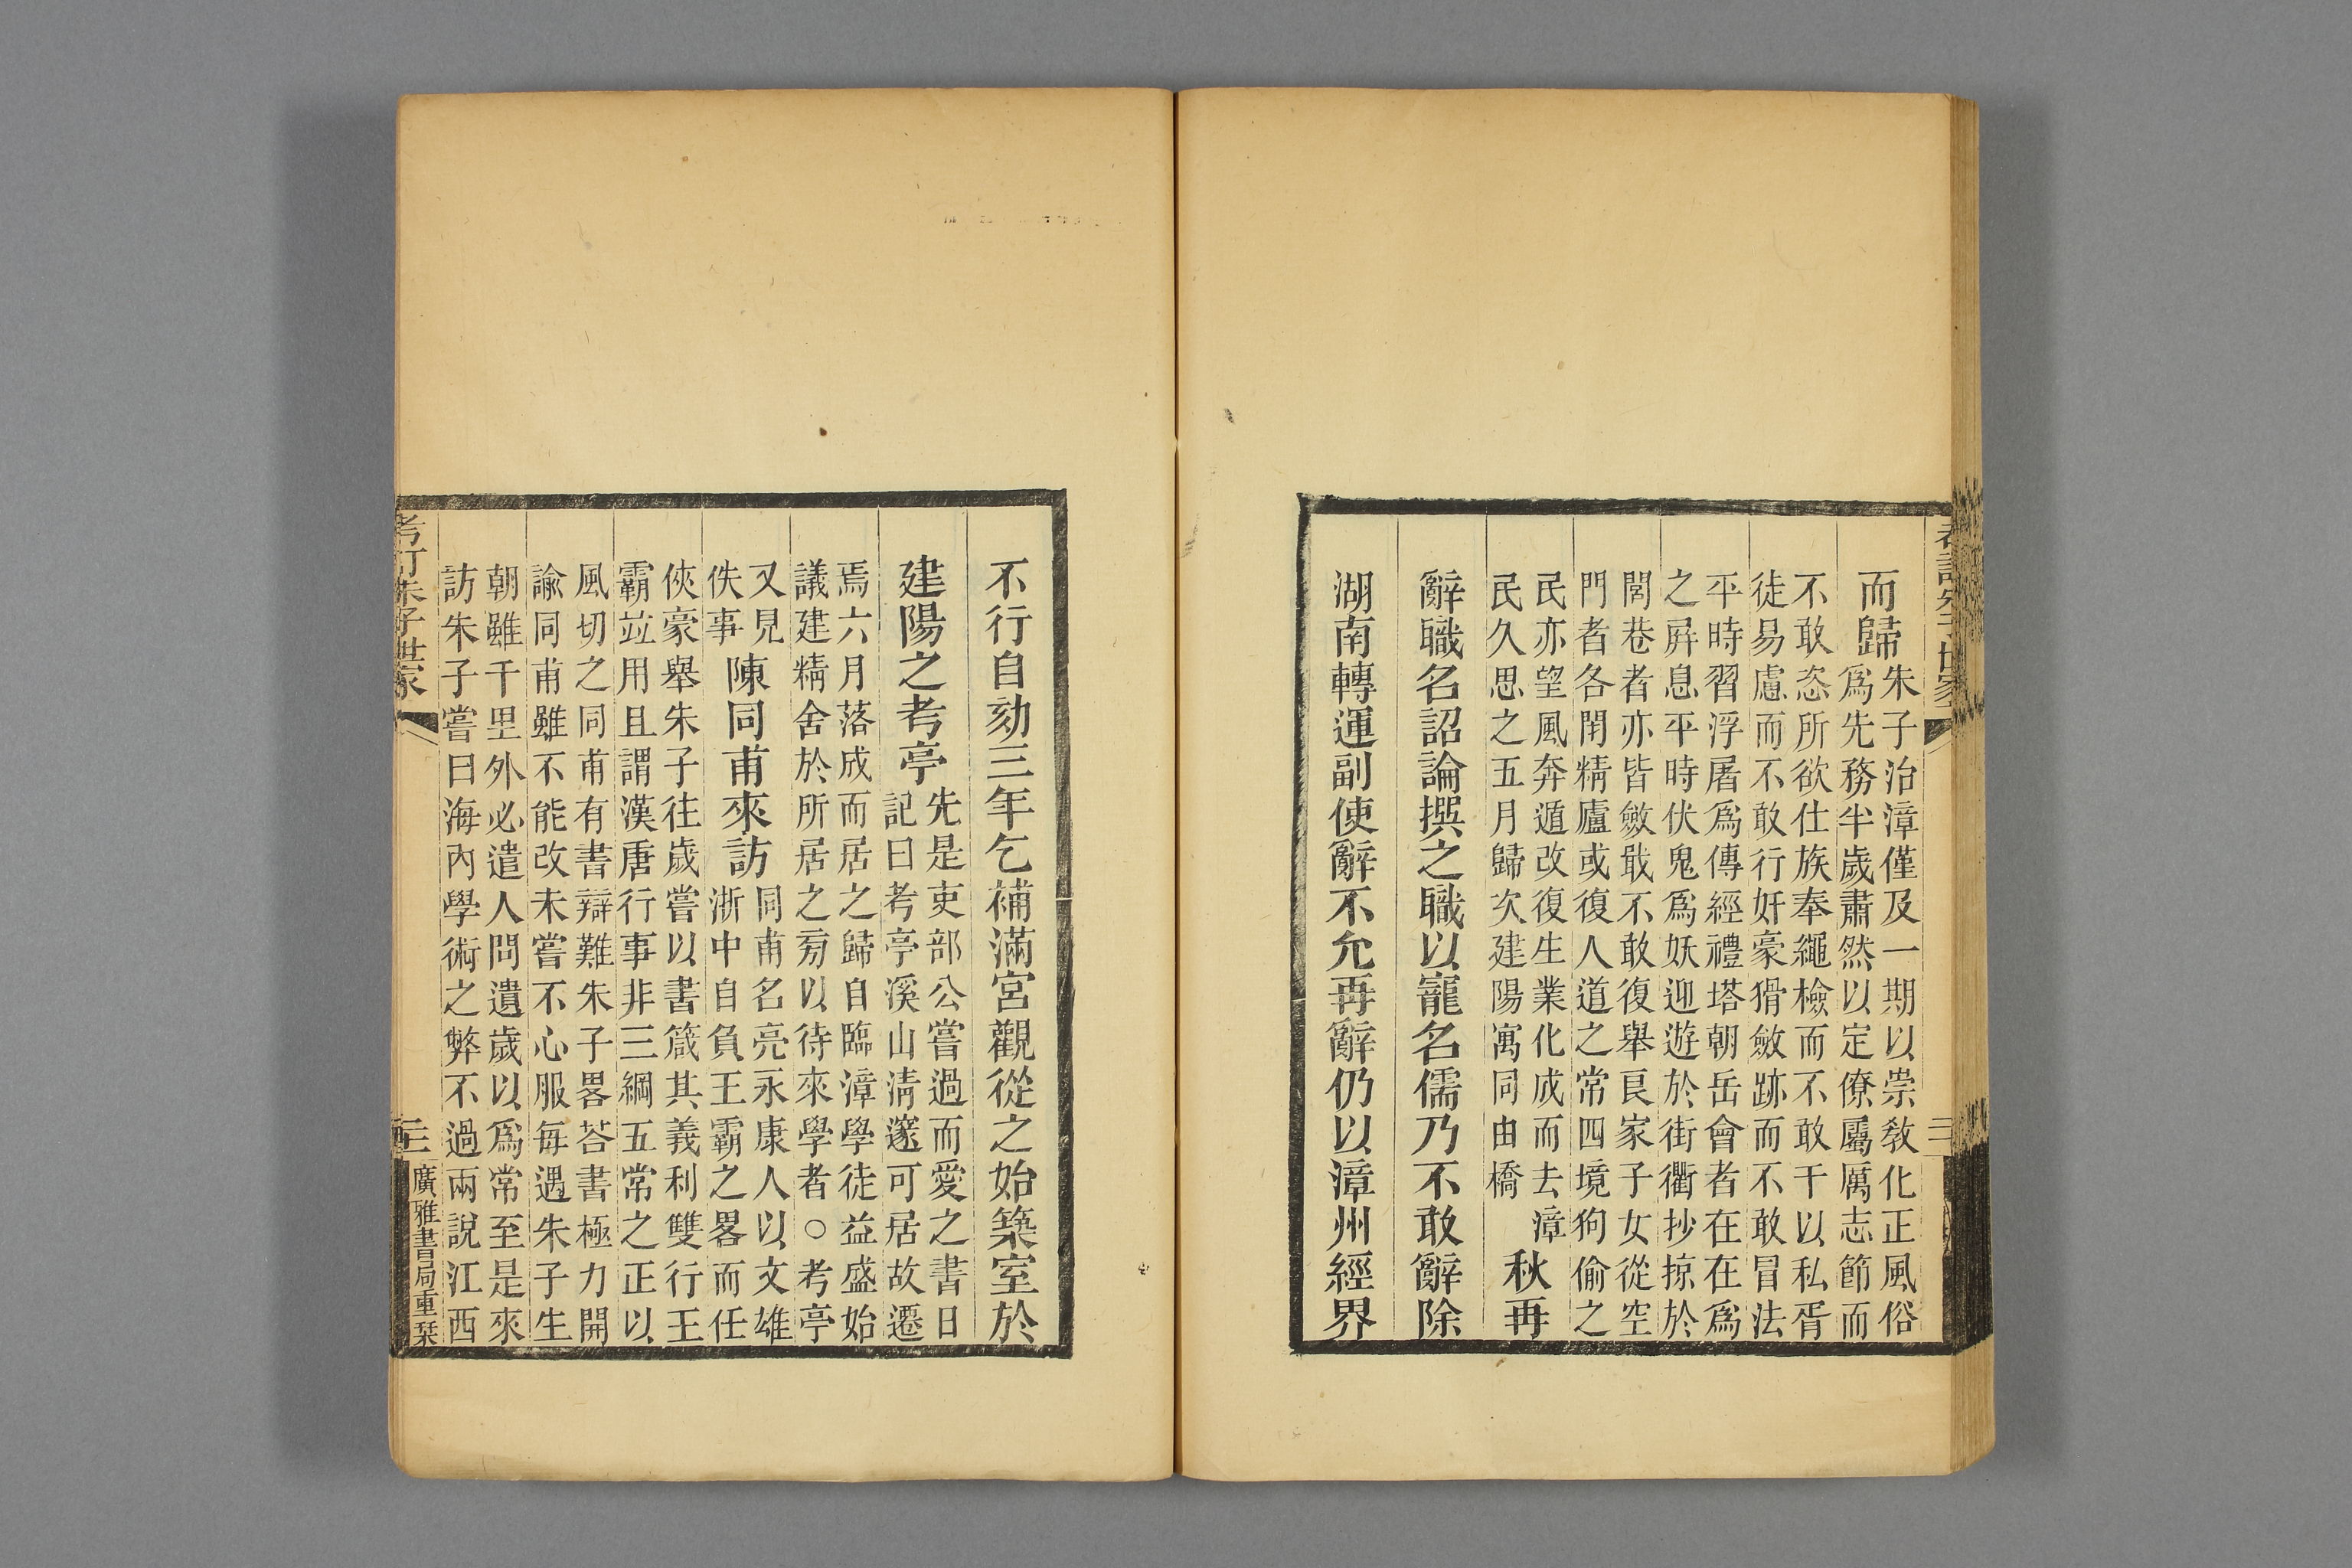 而歸朱子治漳僅及一期以崇敎化正風俗
爲先務半歲肅然以定僚屬厲志節而
不敢恣所欲仕族奉繩檢而不敢干以私胥
徒易慮而不敢行奸豪猾斂跡而不敢冒法
平時習浮屠爲傳經禮塔朝岳會者在在爲
之屛息平時伏鬼爲妖迎遊於街衢抄掠於
閭巷者亦皆斂戢不敢復舉良家子女從空
門者各閉精廬或復人道之常四境狗偷之
民亦望風奔遁改復生業化成而去漳
民久思之五月歸次建陽寓同由橋
秋再
辭職名詔論撰之職以寵名儒乃不敢辭除
湖南轉運副使辭不允再辭仍以漳州經界
不行自劾三年乞補滿宮觀從之始築室於
建陽之考亭先是吏部公嘗過而愛之書日
記曰考亭溪山淸邃可居故遷
焉六月落成而居之歸自臨漳學徒益盛始
議建精舍於所居之旁以待來學者○考亭
又見
佚事
陳同甫來訪同甫名亮永康人以文雄
浙中自負王霸之畧而任
俠豪舉朱子往歲嘗以書箴其義利雙行王
霸竝用且謂漢唐行事非三綱五常之正以
風切之同甫有書辯難朱子畧荅書極力開
諭同甫雖不能改未嘗不心服每遇朱子生
朝雖千里外必遣人問遺歲以爲常至是來
訪朱子嘗曰海內學術之弊不過兩說江西
考訂朱子世家
三
廣雅書局重栞